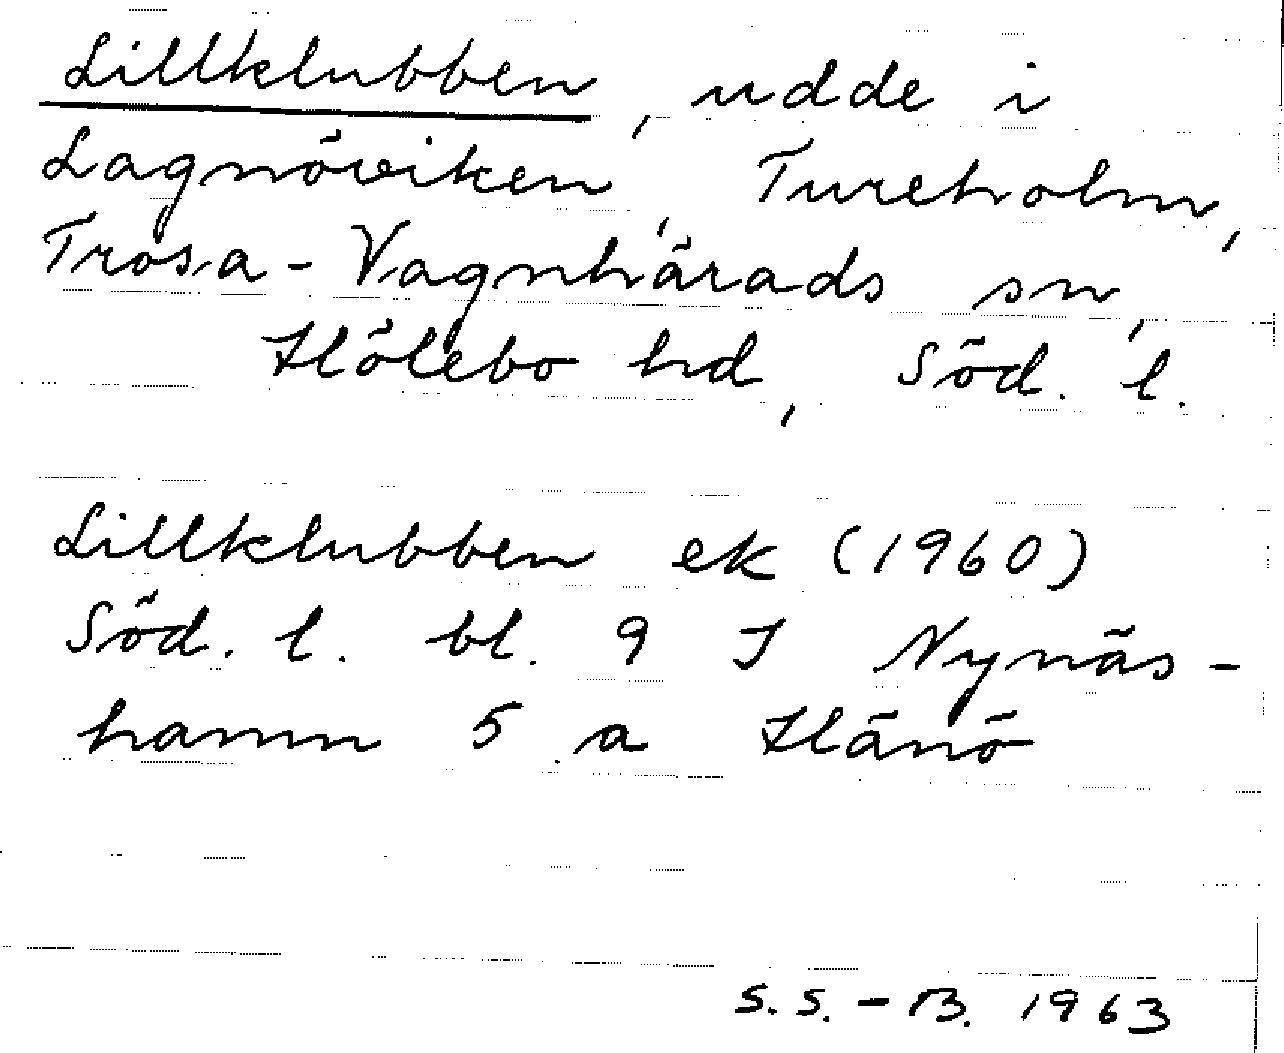 Lillklubben, udde i
Lagnöviken, Tureholm,
Trosa-Vagnhärads sn,
Hölebo hd, Söd. l.
Lillklubben ek (1960)
Söd. l. bl. 9 I Nynäs-
hamn 5 a Hånö
S.S.-B. 1963